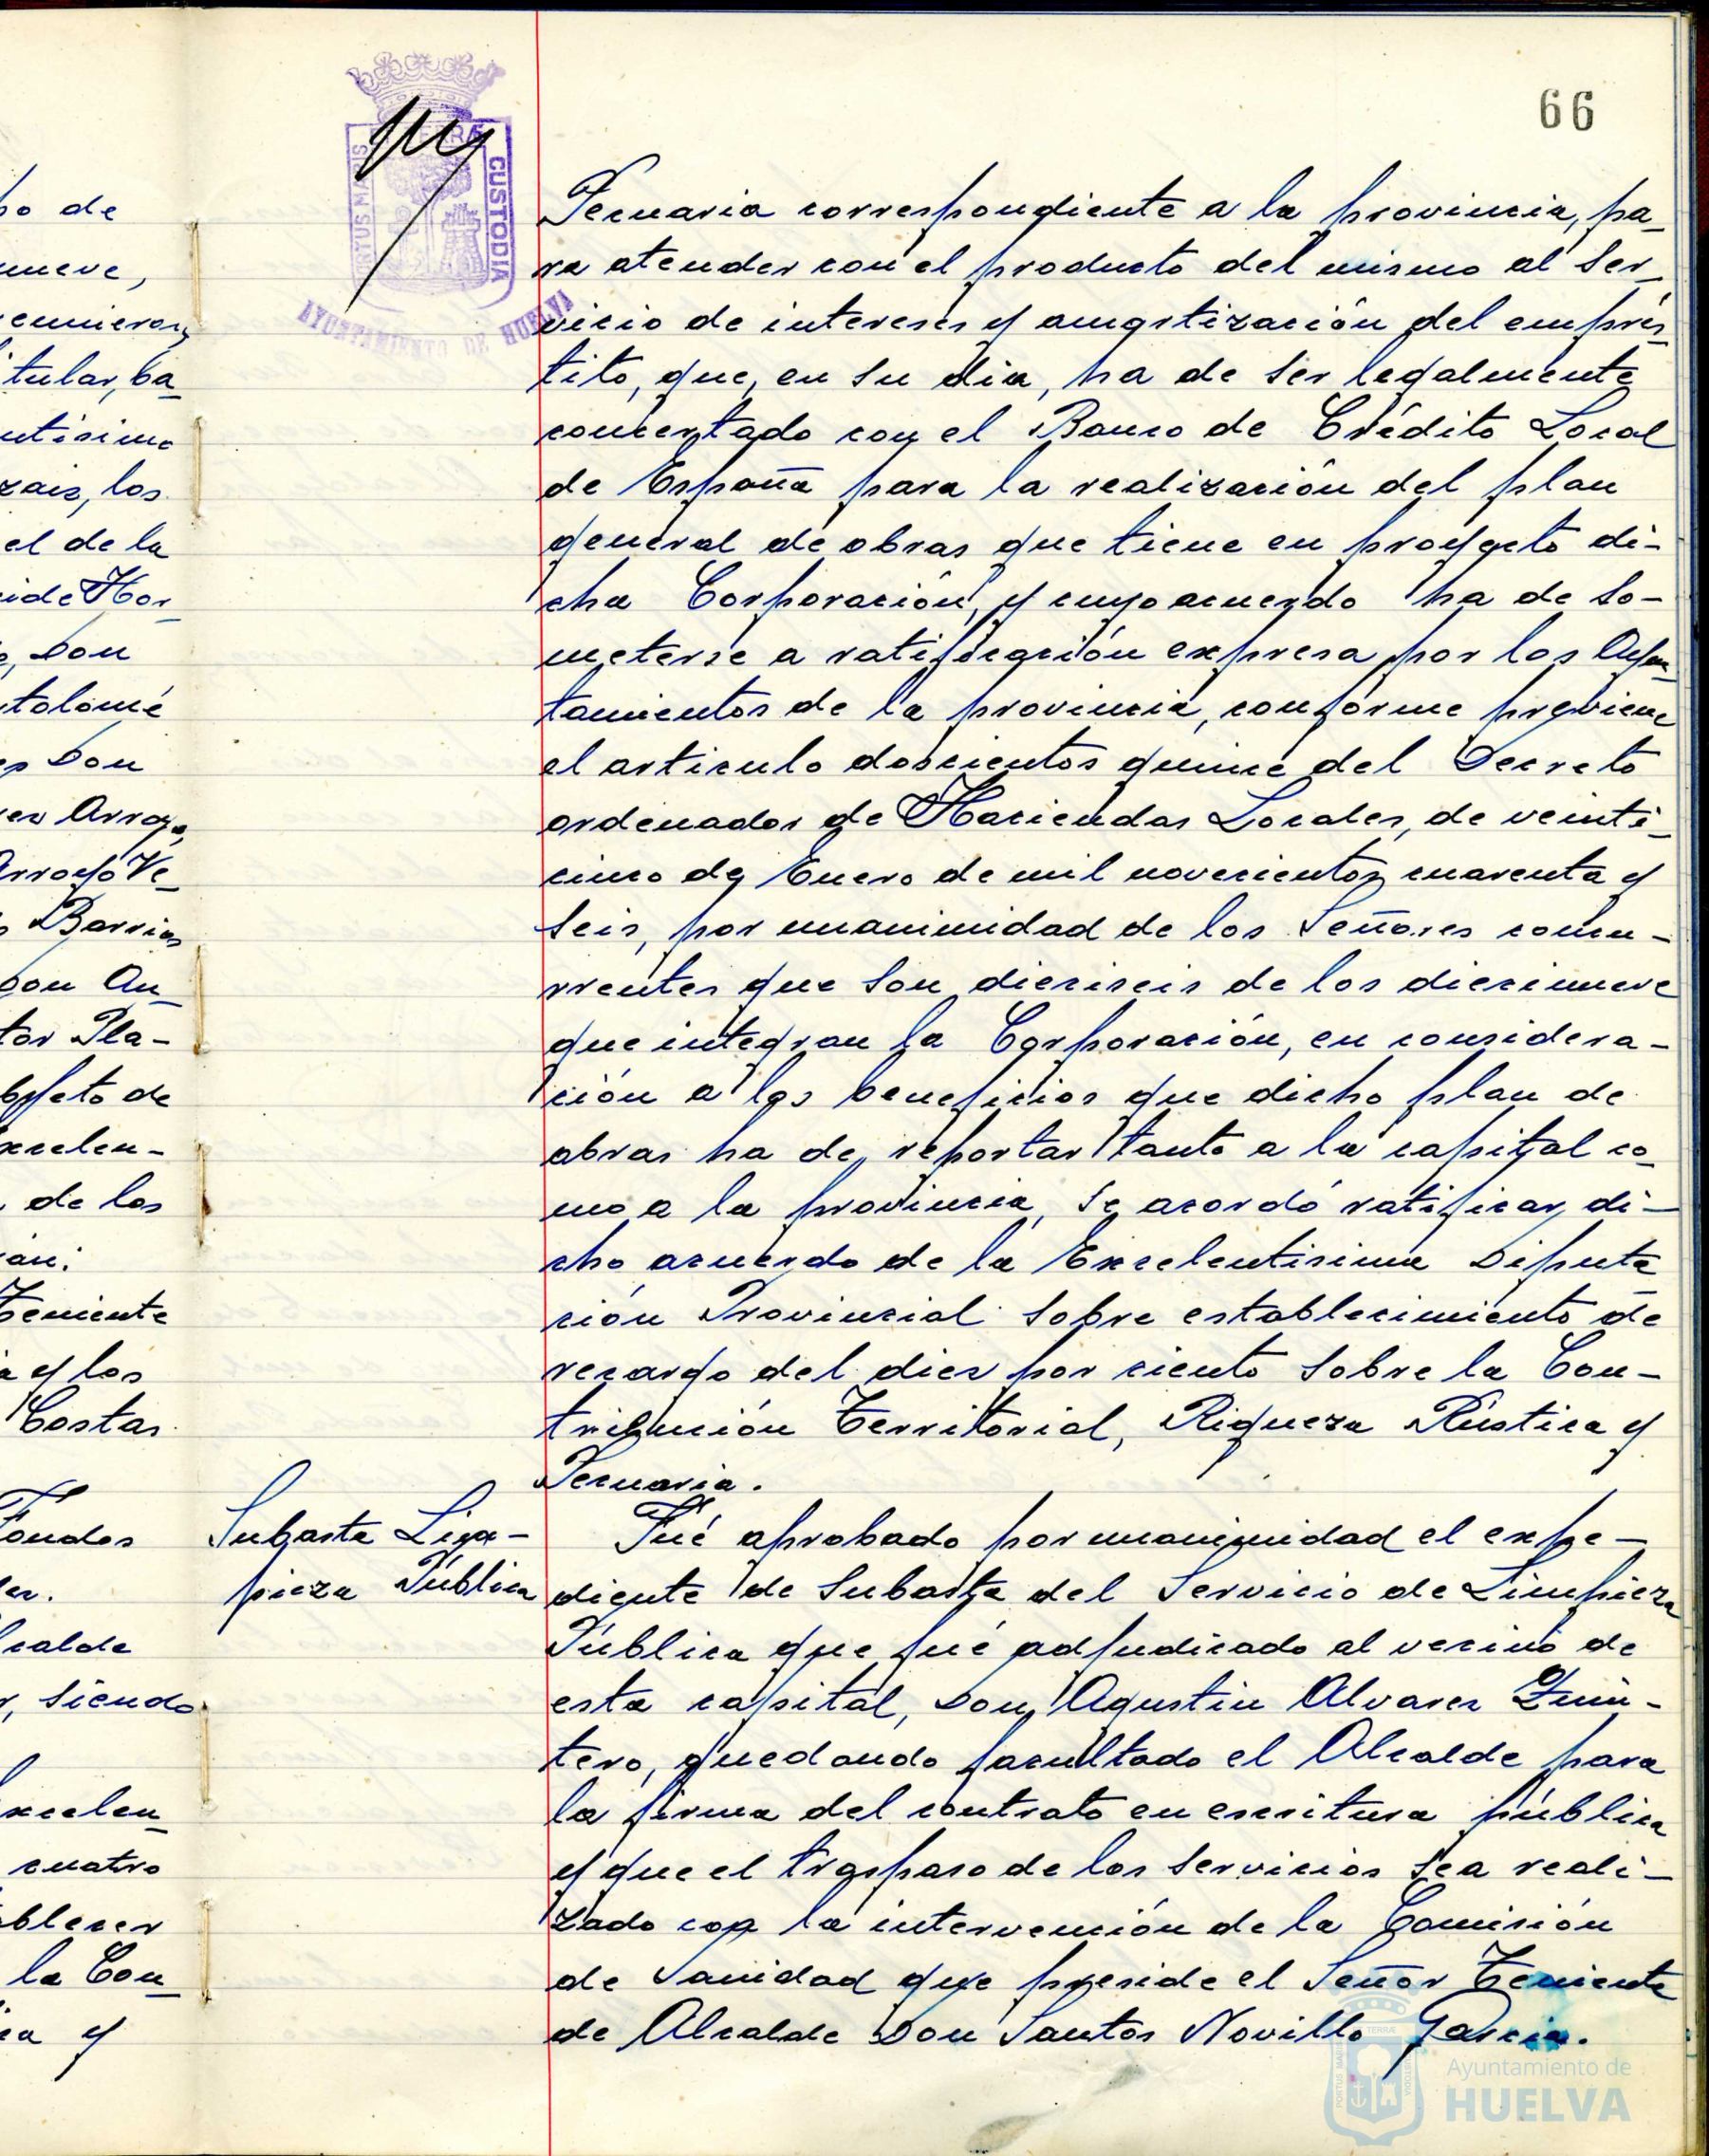 66
PORTUS MARIS
CUSTODIA
AYUNTAMIENTO DE HUELVA
Pecuaria correspondiente a la provincia, pa-
ra atender con el producto del mismo al ser-
vicio de intereses y amortización del emprés-
tito, que, en su dia, ha de ser legalmente
concertado con el Banco de Crédito Local
de España para la realización del plan
general de obras que tiene en proyecto di-
cha Corporación, y cuyo acuerdo ha de so-
meterse a ratificación expresa por los Ayun-
tamientos de la provincia, conforme previene
el articulo doscientos quince del Decreto
ordenador de Haciendas Locales, de veinti-
cinco de Enero de mil novecientos cuarenta y
seis, por unanimidad de los Señores concu-
rrentes que son dieciseis de los diecinueve
que integran la Corporación, en considera-
ción a los beneficios que dicho plan de
obras ha de reportar tanto a la capital co-
mo a la provincia, se acordó ratificar di-
cho acuerdo de la Excelentisima Diputa
ción Provincial sobre establecimiento de
recargo del diez por ciento sobre la Con-
tribución Territorial, Riqueza Rústica y
Pecuaria.
Subasta Lim-
pieza Pública
Fué aprobado por unanimidad el expe-
diente de subasta del Servicio de Limpieza
Pública que fué adjudicado al vecino de
esta capital, Don Agustin Alvarez Quin-
tero, quedando facultado el Alcalde para
la firma del contrato en escritura pública
y que el traspaso de los servicios sea reali-
zado con la intervención de la Comisión
de Sanidad que preside el Señor Teniente
de Alcalde Don Santos Novillo Garcia.
Ayuntamiento de
HUELVA
de
nueve,
tular, ba-
los
el de la
Don
tolomé
Don
Arroyo Ve-
Barrios
Don An-
Pla-
de
de los
Teniente
y los
Costas
Fondos
, siendo
cuatro
la Con-
y